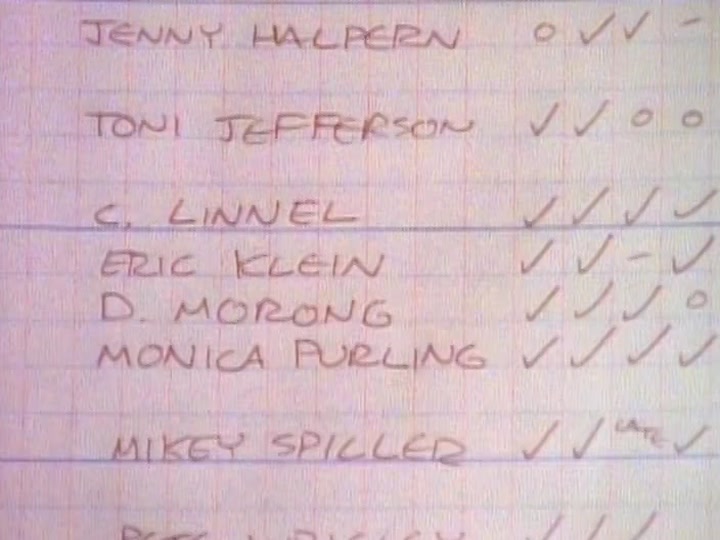 JENNY HALPERN o ✓ ✓ -
TONI JEFFERSON ✓ ✓ o o
C. LINNEL ✓ ✓ ✓ ✓
ERIC KLEIN ✓ ✓ - ✓
D. MORONG ✓ ✓ ✓ o
MONICA PURLING ✓ ✓ ✓ ✓
MIKEY SPILLER ✓ ✓ LATE ✓
✓ ✓ ✓